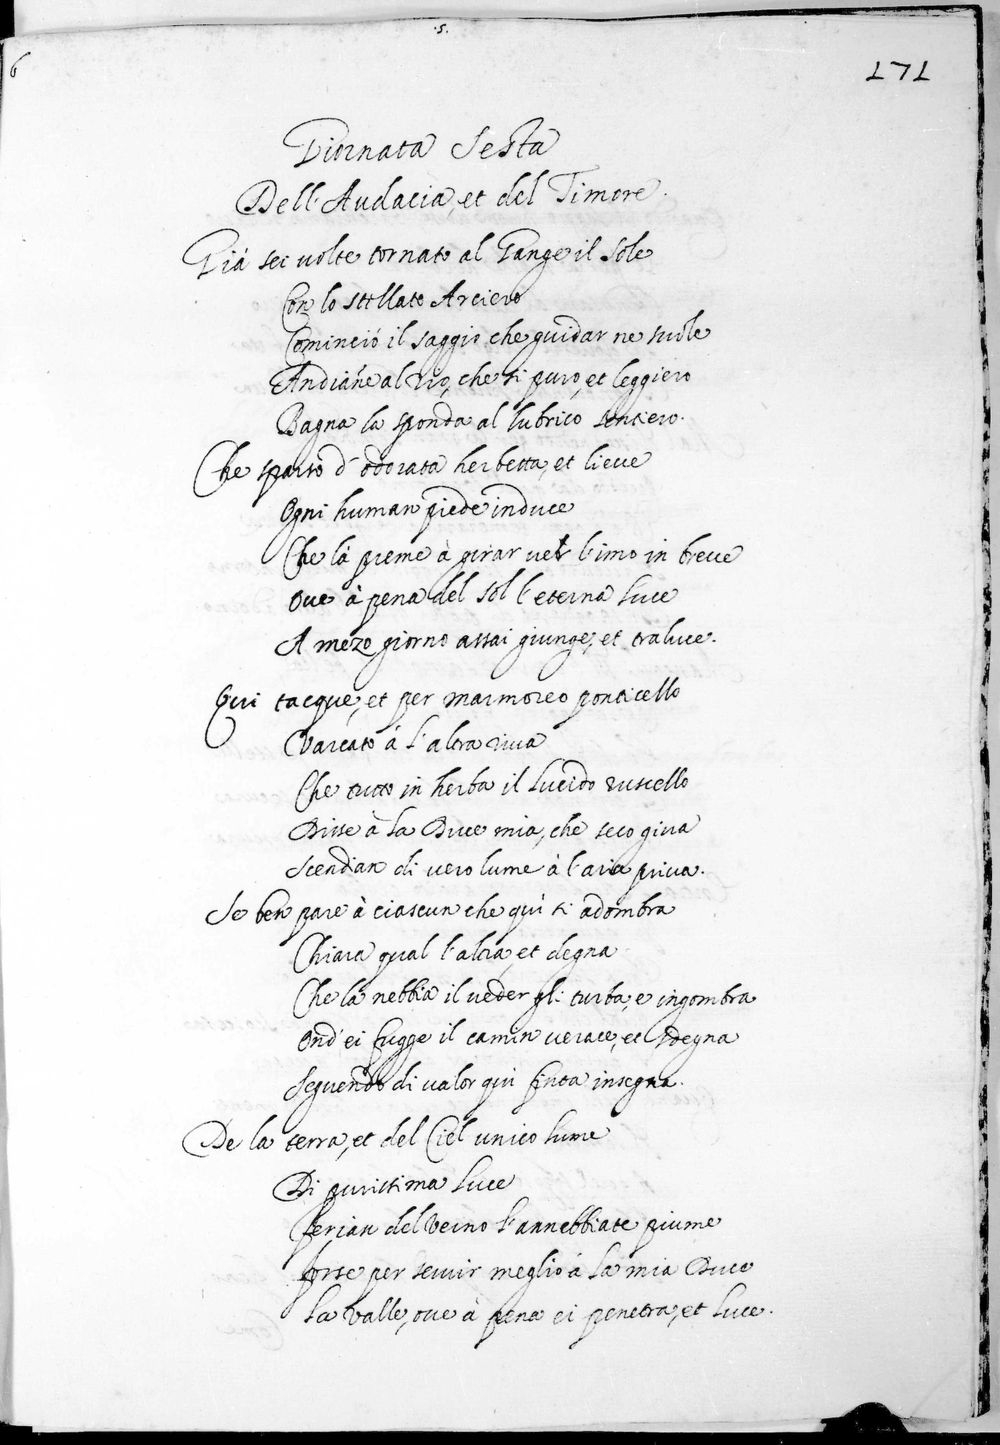 .5.
6
171
Giornata Sesta
Dell'Audacia, et del Timore.
Già sei uolte tornato al Gange il Sole
Con lo stellato Arciero
Cominciò il saggio che guidar ne suole
Andiãne al rio, che sì puro, et leggiero
Bagna la sponda al lubrico sentiero.
Che sparso d'odorata herbetta, et lieue
Ogni human piede induce
Che là preme à girar uer l'imo in breue
Oue à pena del Sol l'eterna luce
A mezo giorno assai giunge, et traluce.
Qui tacque, et per marmoreo ponticello
Varcato à l'altra riua
Che tutto in herba il lucido ruscello
Disse à la Duce mia, che seco giua
Scendian di uero lume à l'aria priua.
Se ben pare à ciascun che quì si adombra
Chiara qual l'altra, et degna
Che la nebbia il ueder gli turba, e ingombra
Ond'ei fugge il camin uerace, et sdegna
Seguendo di ualor quì finta insegna.
De la terra, et del Ciel unico lume
Di purissima luce
Ferian del Verno l'annebbiate piume
Forse per seruir meglio à la mia Duce
La Valle, oue à pena ei penetra, et luce.